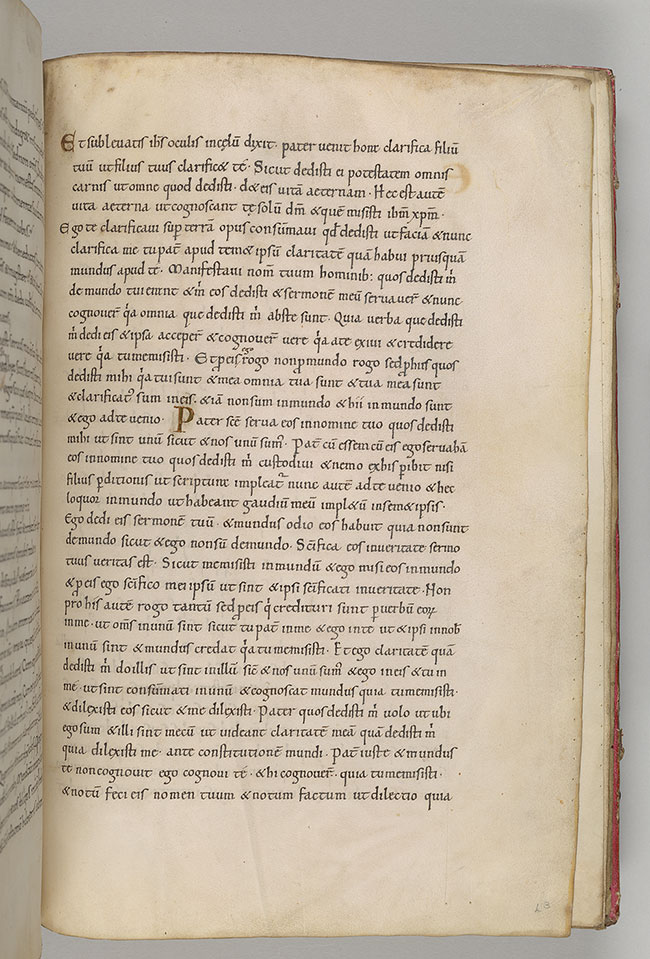 Et subleuatis ihs oculis incelũ dixit · pater uenit hora clarifica filiũ
tuũ ut filius tuus clarific& te · Sicut dedisti ei potestatem omnis
carnis ut omne quod dedisti · d& eis uitã aeternam · Hec est autẽ
uita aeterna ut cognoscant te solũ dm̃ & quẽ misisti ihm̃ xpm̃ ·
Ego te clarificaui sup terrã opus consũmaui qd dedisti ut faciã & nunc
clarifica me tu pat̃ apud tem& ipsũ claritatẽ quã habui priusquã
mundus apud te · Manifestaui nom̃ tuum hominib: quos dedisti m̃
de mundo tui erant & m̃ eos dedisti & sermonẽ meũ seruauer̃ & nunc
cognouer̃ q̃a omnia que dedisti m̃ abste sunt · Quia uerba que dedisti
m̃ dedi eis & ipsa acceper̃ & cognouer̃ uere q̃a ate exiui & crediderẽ
uere q̃a tumemisisti · Et p eis ego rogo non p mundo rogo sed p hiis quos
dedisti mihi q̃a tui sunt & mea omnia tua sunt & tua mea sunt
& clarificat' sum ineis · & iã nonsum inmundo & hii inmundo sunt
& ego adte uenio · Pater sc̃e serua eos innomine tuo quos dedisti
mihi ut sint unũ sicut & nos unũ sum' · Pat̃ cũ essem cũ eis ego seruabã
eos innomine tuo quos dedisti m̃ custodiui & nemo exhis p̃ibit nisi
filius p̃ditionis ut scripture impleat̃ nunc autẽ adte uenio & hec
loquor inmundo ut habeant gaudiũ meũ impl&ũ insem&ipsis ·
Ego dedi eis sermonẽ tuũ · & mundus odio eos habuit quia nonsunt
demundo sicut & ego nonsũ demundo · Sc̃ifica eos inueritate sermo
tuus ueritas est · Sicut memisisti inmundũ & ego misi eos inmundo
& p eis ego sc̃ifico mei ipsũ ut sint & ipsi sc̃ificati inueritate · Non
pro his autẽ rogo tantũ sed p eis q̃ credituri sunt p uerbũ eoꝝ
inme · ut om̃s inunũ sint sicut tu pat̃ inme & ego inte ut & ipsi innob̃
inunũ sint & mundus credat q̃a tu memisisti · Et ego claritatẽ quã
dedisti m̃ do illis ut sint inillũ sic̃ & nos unũ sum' & ego ineis & tu in
me · ut sint consũmati inunũ & cognoscat mundus quia tumemisisti ·
& dilexisti eos sicut & me dilexisti · Pater quos dedisti m̃ uolo ut ubi
ego sum & illi sint mecũ ut uideant claritatẽ meã quã dedisti m̃
quia dilexisti me · ante constitutionẽ mundi · Pat̃ iuste & mundus
te non cognouit ego cognoui te · & hi cognouer̃ · quia tumemisisti ·
& notũ feci eis nomen tuum & notum factum ut dilectio quia